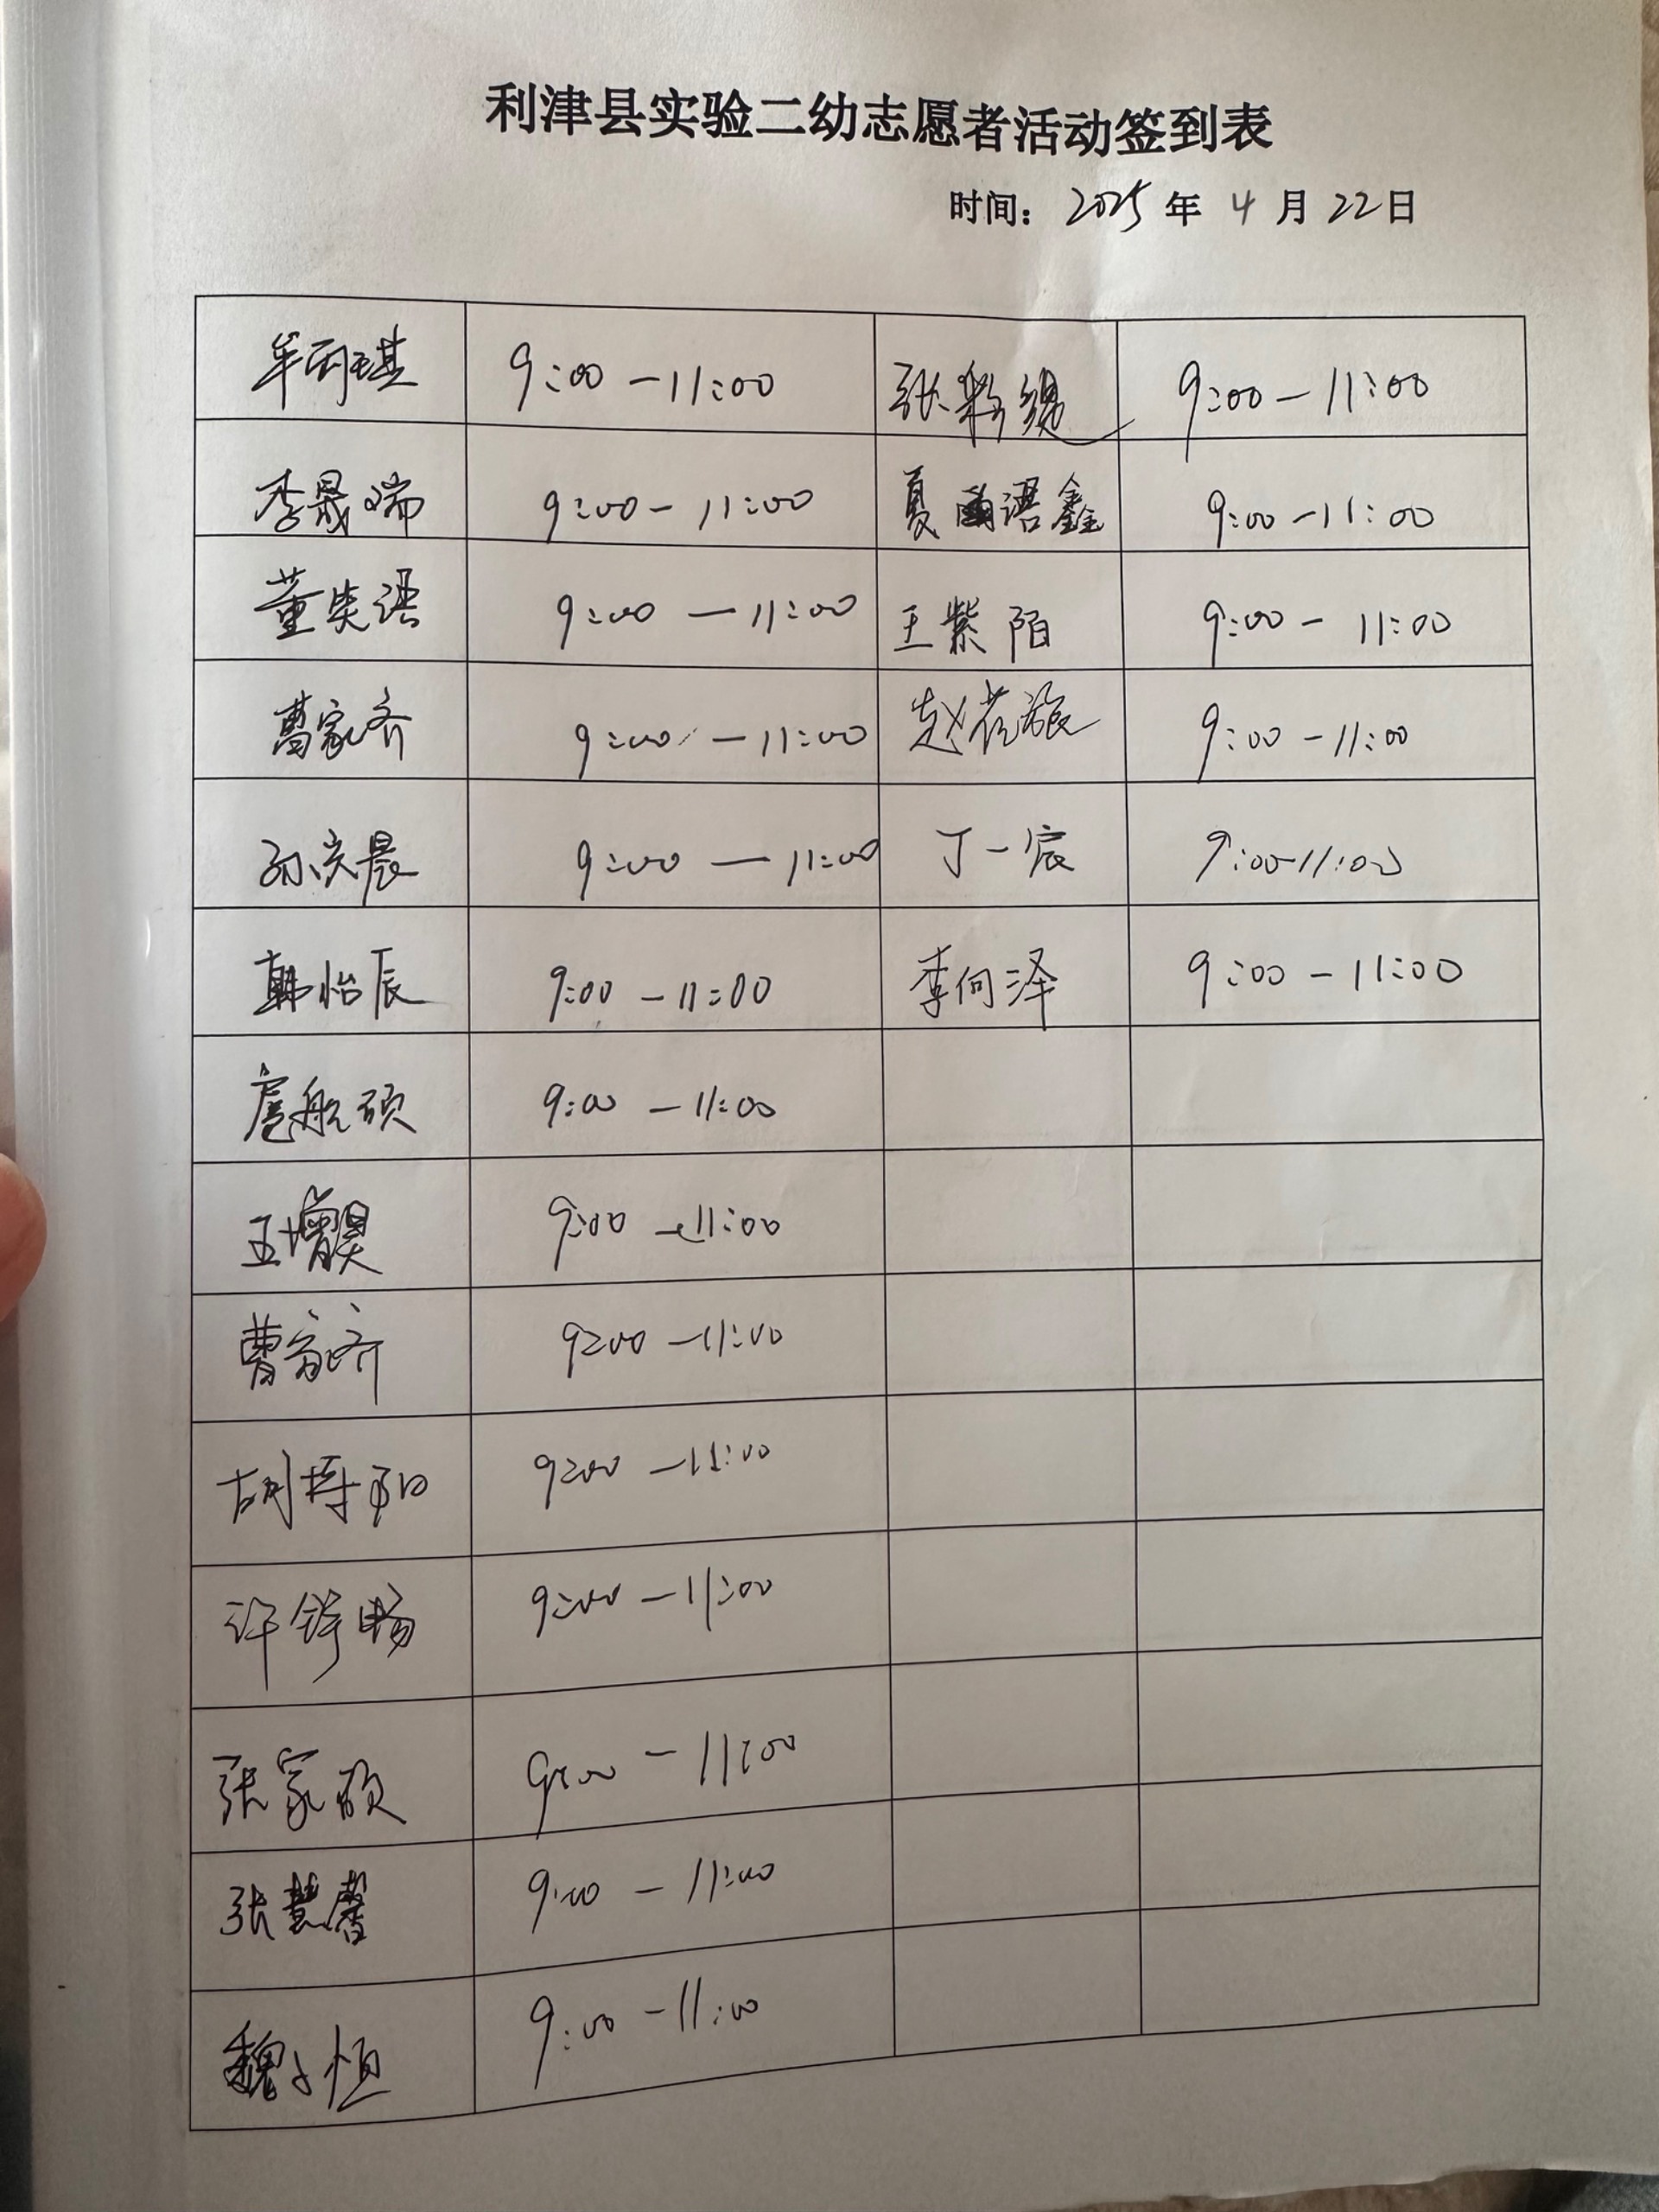 利津县实验二幼志愿者活动签到表
时间: 2025 年 4 月 22日
牟雨琪 9:00-11:00 张 9:00-11:00
李晟瑞 9:00-11:00 夏语鑫 9:00-11:00
董语 9:00-11:00 王紫陌 9:00-11:00
曹家齐 9:00-11:00 赵 9:00-11:00
孙晨 9:00-11:00 丁一宸 9:00-11:00
韩怡辰 9:00-11:00 李向泽 9:00-11:00
扈航硕 9:00-11:00
王增昊 9:00-11:00
曹家齐 9:00-11:00
胡梓阳 9:00-11:00
许舒畅 9:00-11:00
张家硕 9:00-11:00
张慧馨 9:00-11:00
魏子恒 9:00-11:00